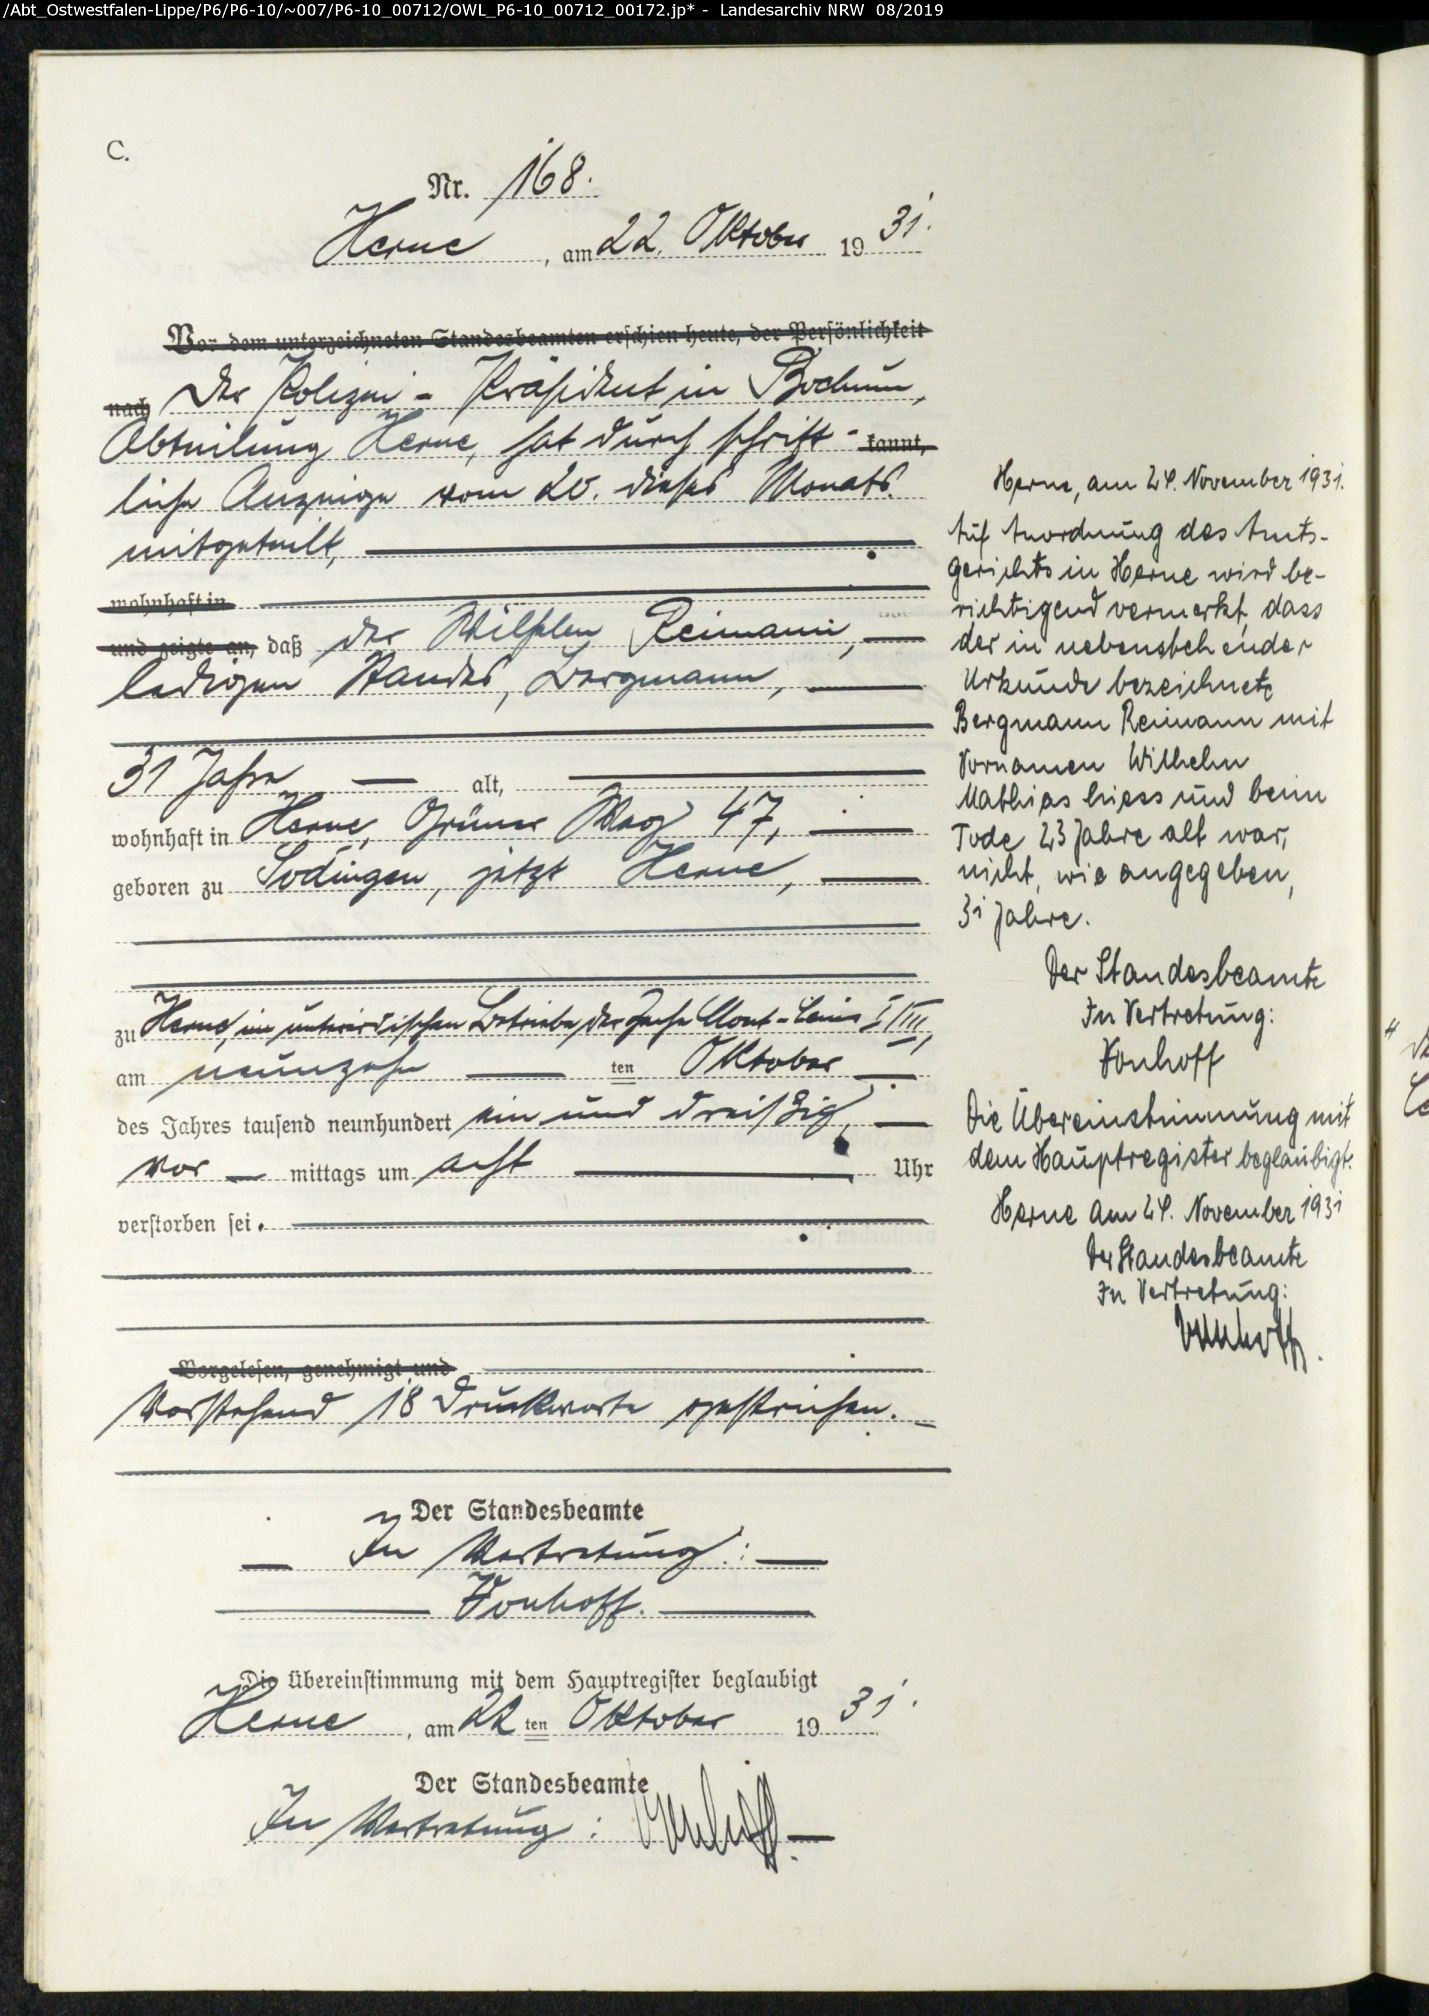 /Abt_Ostwestfalen-Lippe/P6/P6-10/~007/P6-10_00712/OWL_P6-10_00712_00172.jp* - Landesarchiv NRW 08/2019
C.
Nr. 168.
Herne, am 22. Oktober 1931.
Vor dem unterzeichneten Standesbeamten erschien heute, der Persönlichkeit
nach Der Polizei-Präsident in Bochum,
Abteilung Herne, hat durch schrift- kannt,
liche Anzeige vom 20. dieses Monats
mitgeteilt,
wohnhaft in
und zeigte an, daß der Wilhelm Reimann,
ledigen Standes, Bergmann,
31 Jahre alt,
wohnhaft in Herne, Grüner Weg 47,
geboren zu Sodingen, jetzt Herne,
zu Herne, im unterirdischen Betriebe der Zeche Mont-Cenis I/III,
am neunzehn ten Oktober
des Jahres tausend neunhundert ein und dreißig,
vor mittags um acht Uhr
verstorben sei.
Vorgelesen, genehmigt und
Vorstehend 18 Druckworte gestrichen.
Der Standesbeamte
In Vertretung:
Vonhoff.
Die Übereinstimmung mit dem Hauptregister beglaubigt
Herne, am 22 ten Oktober 1931.
Der Standesbeamte
In Vertretung: Vonhoff
Herne, am 24. November 1931.
Auf Anordnung des Amts-
gerichts in Herne wird be-
richtigend vermerkt, dass
der in nebenstehender
Urkunde bezeichnete
Bergmann Reimann mit
Vornamen Wilhelm
Mathias hiess und beim
Tode 23 Jahre alt war,
nicht, wie angegeben,
31 Jahre.
Der Standesbeamte
In Vertretung:
Vonhoff
Die Übereinstimmung mit
dem Hauptregister beglaubigt.
Herne am 24. November 1931
Der Standesbeamte
In Vertretung:
Vonhoff.